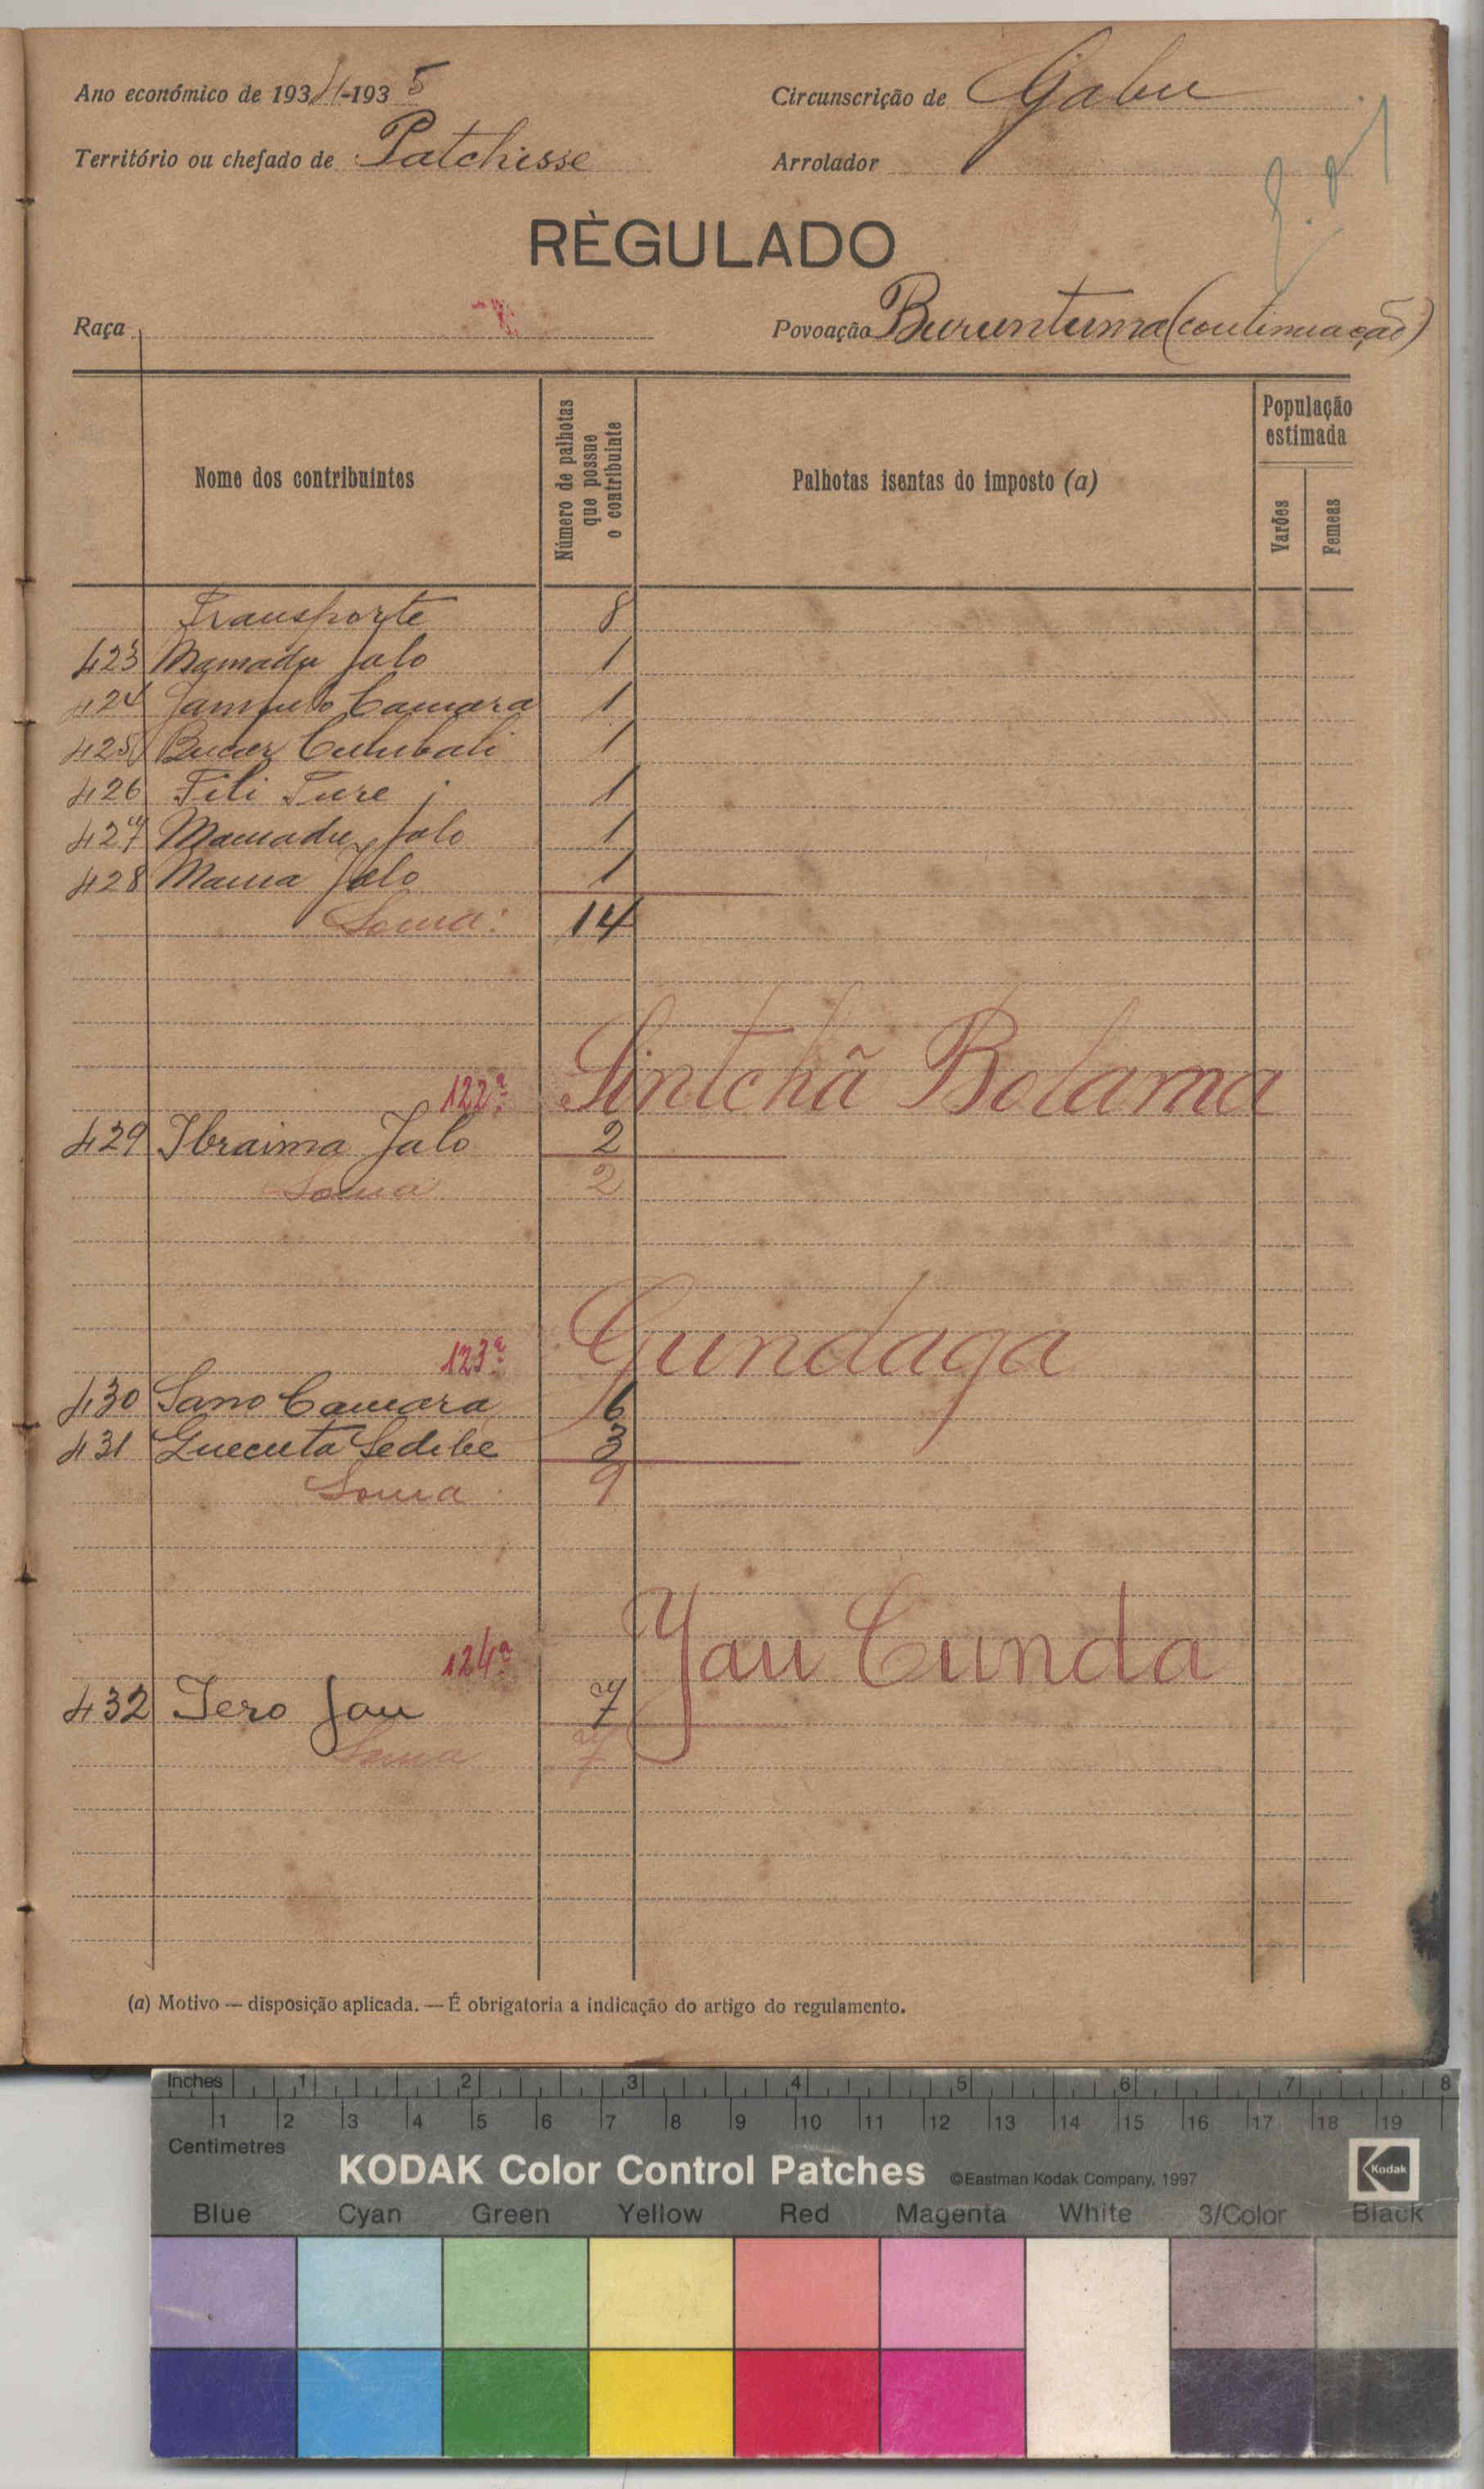 Ano económico de 1934-1935
Circunscrição de Gabu
Território ou chefado de Patchisse
Arrolador
RÈGULADO
Raça
Povoação Buruntuma (continuação)
Nome dos contribuintes
Número de palhotas que possue o contribuinte
Palhotas isentas do imposto (a)
População estimada
Varões
Femeas
Transporte 8
423 Mamadu Jalo 1
424 Camara 1
425 Bucar Culubali 1
426 Fili Ture 1
427 Mamadu Jalo 1
428 Mama Jalo 1
Soma: 14
122ª Sintchã Bolama
429 Ibraima Jalo 2
Soma 2
123ª Gundaga
430 Sano Camara 6
431 Quecuta Sedibe 3
Soma 9
124ª Jau Cunda
432 Tero Jau 7
Soma 7
(a) Motivo — disposição aplicada. — É obrigatoria a indicação do artigo do regulamento.
Inches 1 2 3 4 5 6 7 8
1 2 3 4 5 6 7 8 9 10 11 12 13 14 15 16 17 18 19
Centimetres
KODAK Color Control Patches ©Eastman Kodak Company, 1997 Kodak
Blue Cyan Green Yellow Red Magenta White 3/Color Black